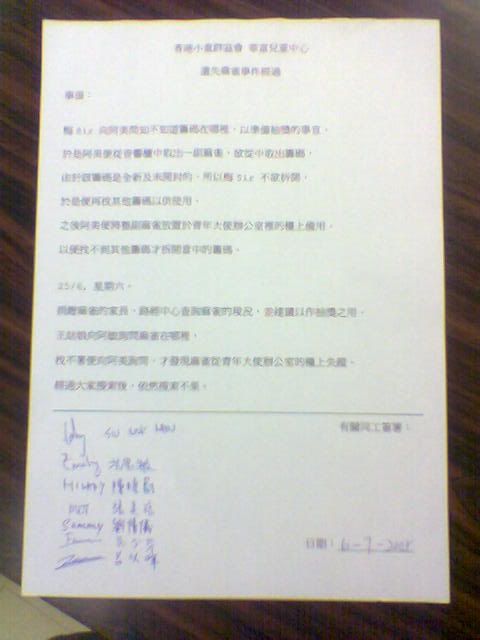 香港小童群益會 華富兒童中心
遺失麻雀事件經過
事源：
梅 Sir 向阿美問知不知道籌碼在哪裡，以準備抽獎的事宜，
於是阿美便從音響櫃中取出一副麻雀，欲從中取出籌碼，
由於跟籌碼是全新及未開封的，所以梅 Sir 不欲拆開，
於是便再找其他籌碼以供使用，
之後阿美便將整副麻雀放置於青年大使辦公室裡的櫃上備用，
以便找不到其他籌碼才拆開當中的籌碼。
25/6, 星期六。
捐贈麻雀的家長，路經中心查詢麻雀的現況，並建議以作抽獎之用，
王姑娘向阿敏詢問麻雀在哪裡，
找不著便向阿美詢問，才發現麻雀從青年大使辦公室的櫃上失蹤。
經過大家搜索後，依然搜索不果。
有關同工簽署：
Emily
Hilary
Sammy 劉
日期：6-7-2005